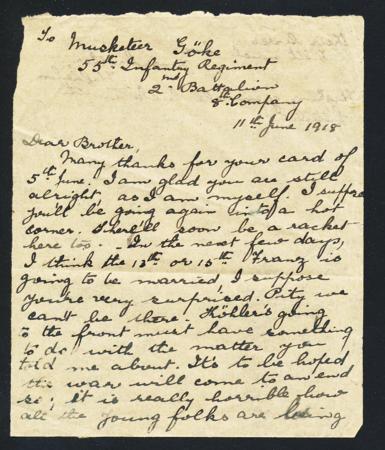 To Musketeer Göke
55th Infantry Regiment
2nd Battalion
8th Company
11th June 1918
Dear Brother,
Many thanks for your card of
5th June. I am glad you are still
alright, as I am myself. I suppose
you'll be going again into a hot
corner. There'll soon be a racket
here too. In the next few days,
I think the 13th or 15th Franz is
going to be married, I suppose
you're very surprised. Pity we
can't be there. Köhler's going
to the front must have something
to do with the matter you
told me about. It's to be hoped
the war will come to an end
so; it is really horrible how
all the young folks are being